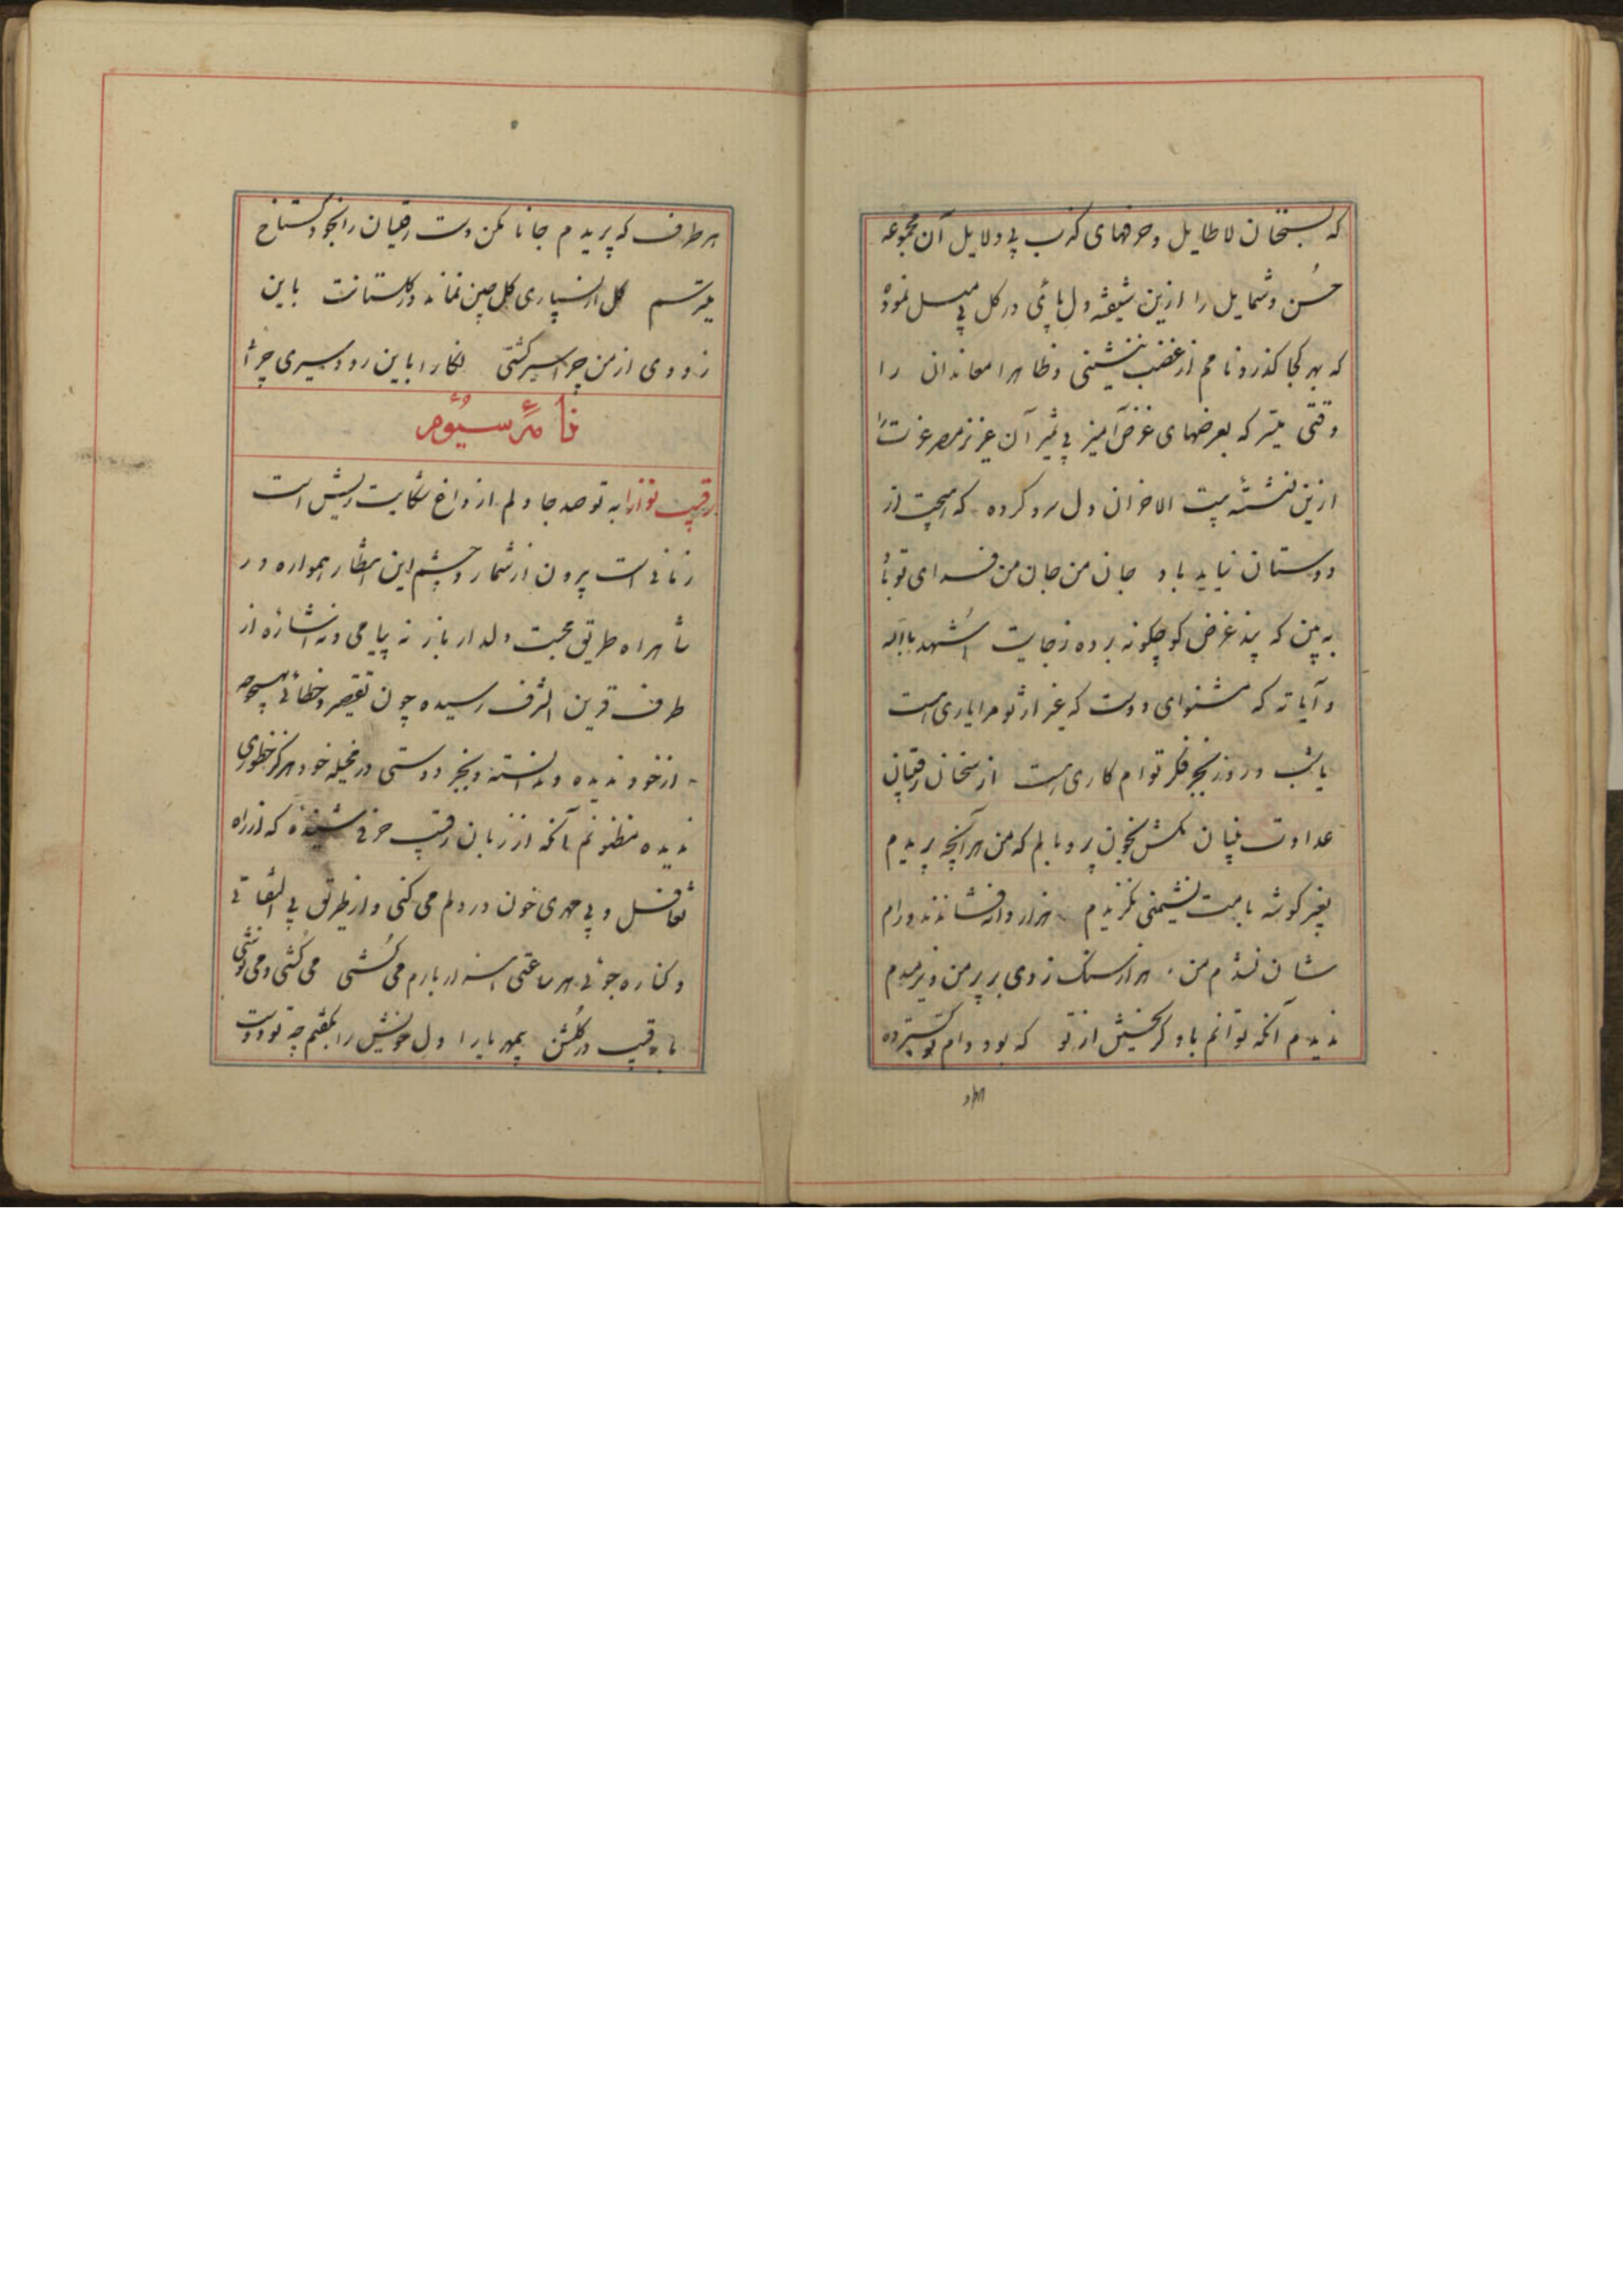 که بسخنان لاطایل و حرفهای کذب بی دلایل آن مجموعه
حسن و شمایل را ازین شیفته دل پائی در گل بی میل نموده
که بهر کجا گذرد نامم از غضب ننشینی و ظاهرا معاندان را
وقتی میسر که بعرضهای غرض آمیز بی تمیز آن عزیز مصر عزت را
ازین نشسته بیت الاحزان دل سرد کرده که هیچت از
دوستان نیاید یاد جان من جان من فدای تو باد
به بین که پند غرض گو چگونه برده ز جایت اشهد بالله
و آیاته که مشنو ای دوست که غیر از تو مرا یاری هست
یا شب و روز بجز فکر توام کاری هست از سخنان رقیبان
عداوت بنیان مکش بخون پر و بالم که من هر آنچه پریدم
بغیر گوشه بامت نشیمنی نگزیدم هزار دانه فشاندند و رام
شان نشدم من هزار سنگ زدی بر پر من و نرمیدم
ندیدم آنکه توانم باو گریختن از تو که بود دام تو گسترده
هر طرف که پریدم جانا مکن دست رقیبان را بخود گستاخ
میترسم گل از بسیاری گلچین نماند در گلستانت باین
زودی از من چرا سیر گشتی نگارا باین زود سیری چرا
نامه سیوم
رقیب نوازا به تو صد جا دلم از داغ شکایت ریش است
زمانی است برون از شمار و چشم این انتظار همواره در
شاهراه طریق محبت دلدار باز نه پیامی و نه اشاره از
طرف قرین الشرف رسیده چون تقصیر و خطائی بهیچوجه
از خود ندیده و ندانسته و بجز دوستی در مخیله خود هرگز خطوری
ندیده مظنونم آنکه از زبان رقیب حرفی شنیده که از راه
تغافل و بی مهری خون در دلم می کنی و از طریق بی التفاتی
و کناره جوئی هر ساعتی هزار بارم می کشی می کشی و می نوشی
با رقیب در گلشن بمهر یارا دل خویش را بگفتم چه تو دوست